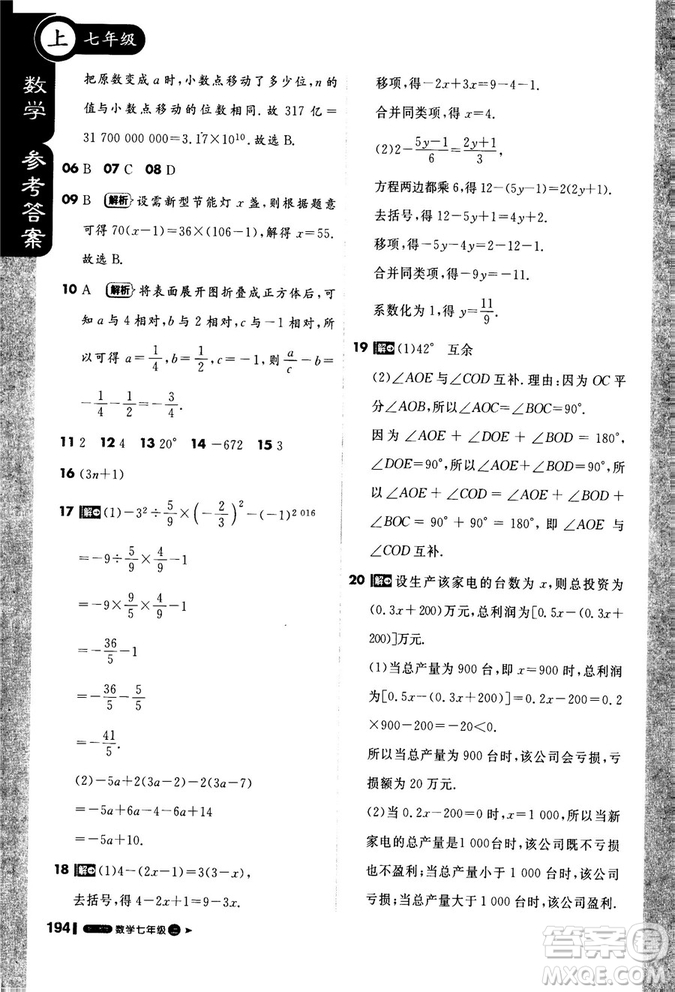 上 七年级
数学 参考答案
把原数变成 a 时,小数点移动了多少位,n 的
值与小数点移动的位数相同. 故 317 亿=
31 700 000 000=3.17×10¹⁰. 故选 B.
06 B 07 C 08 D
09 B 解析 设需新型节能灯 x 盏,则根据题意
可得 70(x-1)=36×(106-1),解得 x=55.
故选 B.
10 A 解析 将表面展开图折叠成正方体后,可
知 a 与 4 相对,b 与 2 相对,c 与 3 相对,所
以可得 a=1/4,b=1/2,c=1/3,则 a/c-b=
-1/4-1/2=-3/4.
11 2 12 4 13 20° 14 -672 15 3
16 (3n+1)
17 解 (1)-3²÷5/9×(-2/3)²-(-1)²⁰¹⁶
=-9÷5/9×4/9-1
=-9×9/5×4/9-1
=-36/5-1
=-36/5-5/5
=-41/5.
(2)-5a+2+15-7
=-5a+17-7
=-5a+10.
18 解 (1)4-(2x-1)=3(3-x)
去括号,得 4-2x+1=9-3x,
移项,得-2x+3x=9-4-1,
合并同类项,得 x=4.
(2)2-(5y-1)/6=(2y+1)/3
方程两边都乘 6,得 12-(5y-1)=2(2y+1),
去括号,得 12-5y+1=4y+2,
移项,得-5y-4y=2-12-1,
合并同类项,得-9y=-11,
系数化为 1,得 y=11/9.
19 解 (1)42° 互余
(2)∠AOE 与∠COD 互补. 理由:因为 OC 平
分∠AOB,所以∠AOC=∠BOC=90°.
因为 ∠AOE + ∠DOE + ∠BOD = 180°,
∠DOE=90°,所以∠AOE+∠BOD=90°,
所以 ∠AOE + ∠COD = ∠AOE + ∠BOD +
∠BOC = 90° + 90° = 180°,所以 ∠AOE 与
∠COD 互补.
20 解 设生产该家电的台数为 x,则总投资为
(0.3x+200)万元,总利润为[0.5x-(0.3x+
200)]万元.
(1)当总产量为 900 台时,即 x=900,总利润
为[0.5x-(0.3x+200)]=0.2x-200=0.2
×900-200=-20<0.
所以当总产量为 900 台时,该公司会亏损,亏
损额为 20 万元.
(2)当 0.2x-200=0,x=1 000,所以当新
家电的总产量为 1 000台时,该公司既不亏损
也不盈利;当总产量小于 1 000台时,该公司会
亏损;总产量大于 1 000台时,该公司会盈利.
194 数学七年级 上
答案圈
MXQE.COM